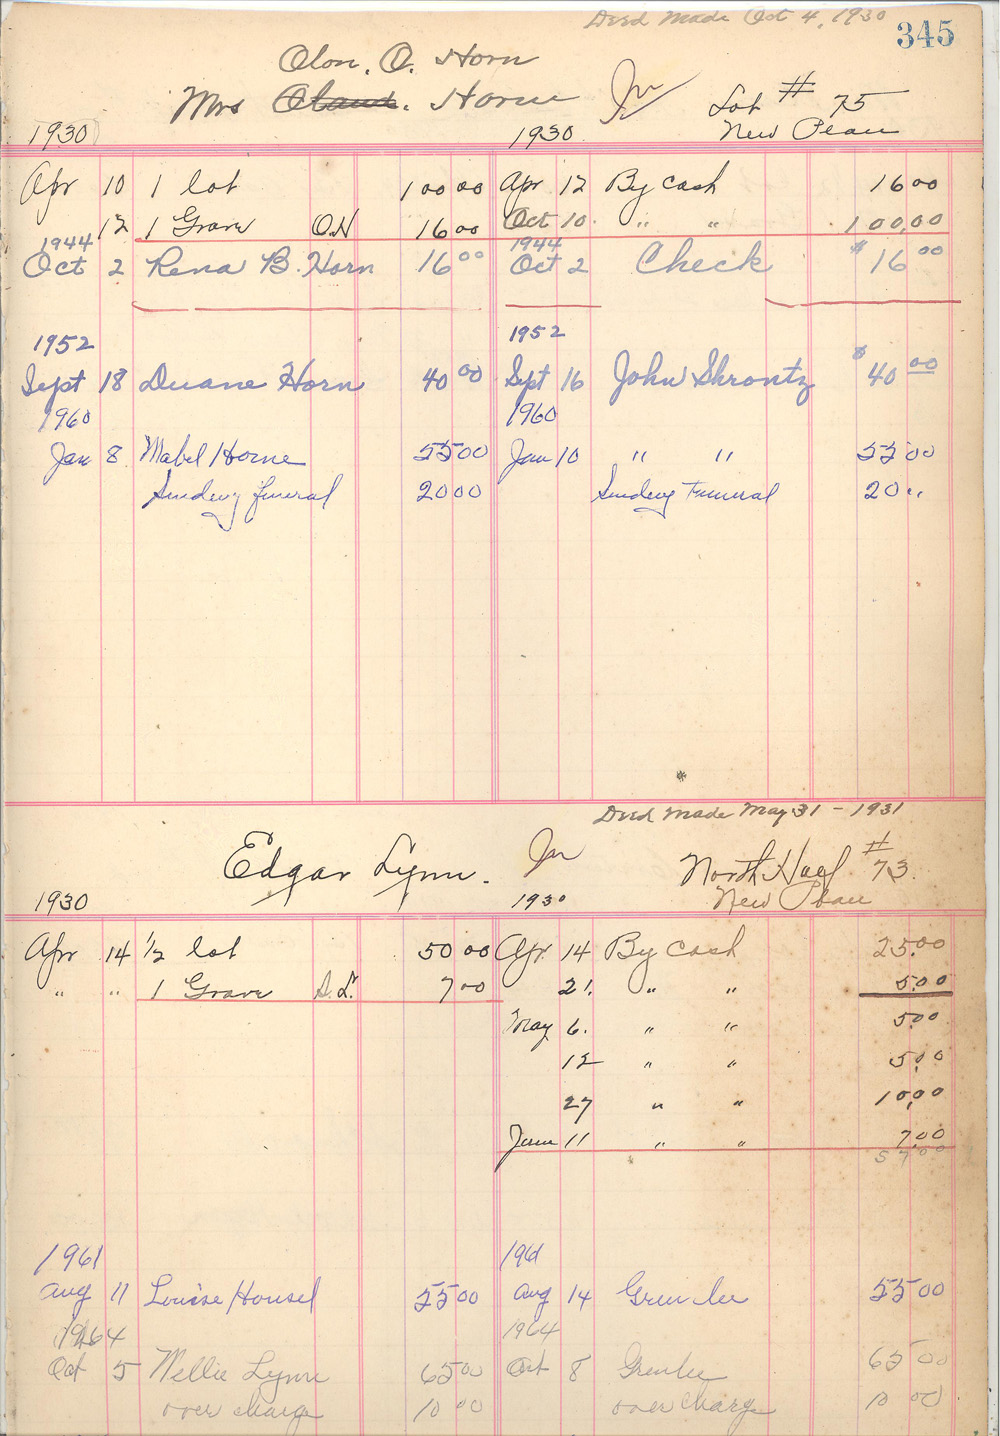 Deed Made Oct 4, 1930
345
Olon. O. Horn
Mrs . Horne Lot # 75
1930 1930 New Plan
Apr 10 1 lot 100 00 Apr 12 By cash 16 00
12 1 Grave O.H 16 00 Oct 10. " " 100.00
1944 1944
Oct 2 Rena B. Horn 16 00 Oct 2 Check $16 00
1952 1952
Sept 18 Duane Horn 40 00 Sept 16 John Shrontz $40 00
1960 1960
Jan 8 Mabel Horne 55 00 Jan 10 " " 55 00
Sunday funeral 20 00 Sunday Funeral 20 "
Deed Made May 31 - 1931
Edgar Lynn. North Half # 73.
1930 1930 New Plan
Apr 14 1/2 lot 50 00 Apr 14 By cash 25.00
" " 1 Grave 7 00 21. " " 5.00
May 6. " " 5.00
12 " " 5.00
27 " " 10.00
June 11 " " 7.00
57.00
1961 1961
Aug 11 Louise Housel 55 00 Aug 14 Grunlee 55 00
1964 1964
Oct 5 Nellie Lynn 65 00 Oct 8 Grenlee 65 00
over charge 10 00 over charge 10 00